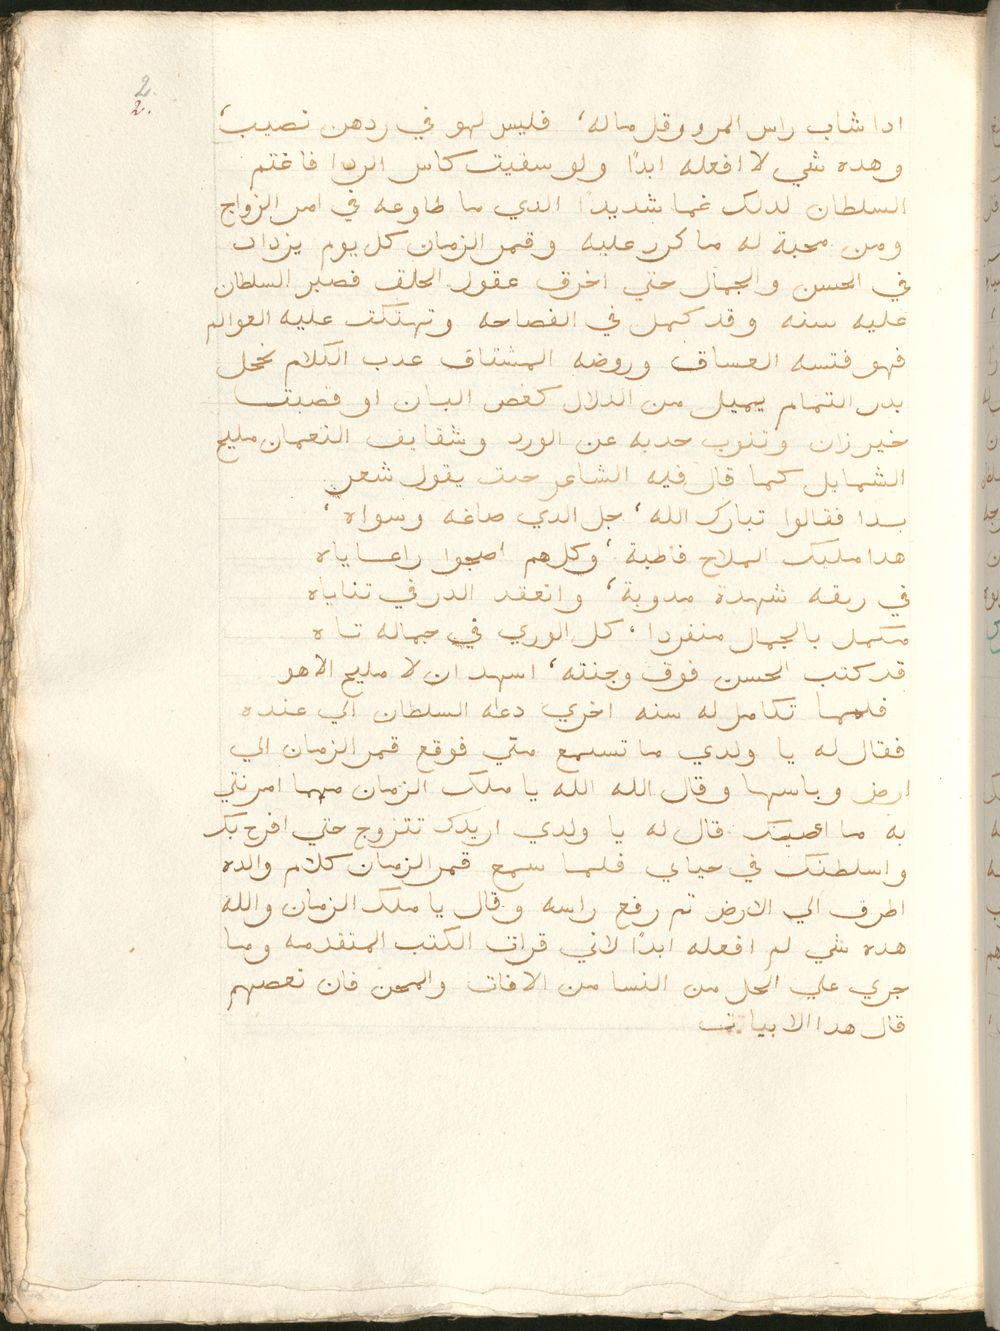 2.
2.
ادا شاب راس المرو وقل ماله، فليس لهو في ردهن نصيب،
وهده شي لا افعله ابدًا ولو سقيت كاس الردا فاغتم
السلطان لدلك غما شديدًا الدي ما طاوعه في امر الزواج
ومن محبة له ما كرر عليه وقمر الزمان كل يوم يزداد
في الحسن والجمال حتي اخرق عقول الخلق فصبر السلطان
عليه سنه وقد كمل في الفصاحه وتهتكت عليه العوالم
فهو فتسه العساق وروضه المشتاق عدب الكلام يخجل
بدر التمام يميل من الدلال كغصن البان او قصبت
خيرزان وتنوب خدبه عن الورد وشقايف النعمان مليح
الشمايل كما قال فيه الشاعر حيت يقول شعر
بدا فقالوا تبارك الله، جل الدي صاغه وسواه،
هدا مليك الملاح قاطبة، وكلهم اصبحوا راعاياه
في ريقه شهدة مدوبة، وانعقد الدر في تناياه
مكمل بالجمال منفردا، كل الوري في جماله تاه
قد كتب الحسن فوق وجنته، اسهد ان لا مليح الا هو
فلما تكامل له سنه اخري دعاه السلطان الي عنده
فقال له يا ولدي ما تسمع مني فوقع قمر الزمان الي
ارض وباسها وقال الله الله يا ملك الزمان مهما امرتني
به ما اعصيك قال له يا ولدي اريدك تتزوج حتي افرح بك
واسلطنك في حياي فلما سمع قمر الزمان كلام والده
اطرق الي الارض تم رفع راسه وقال يا ملك الزمان والله
هده شي لم افعله ابدًا لاني قرات الكتب المتقدمه وما
جري علي الخل من النسا من الافات والمحن فان نعصهم
قال هدا الابيات